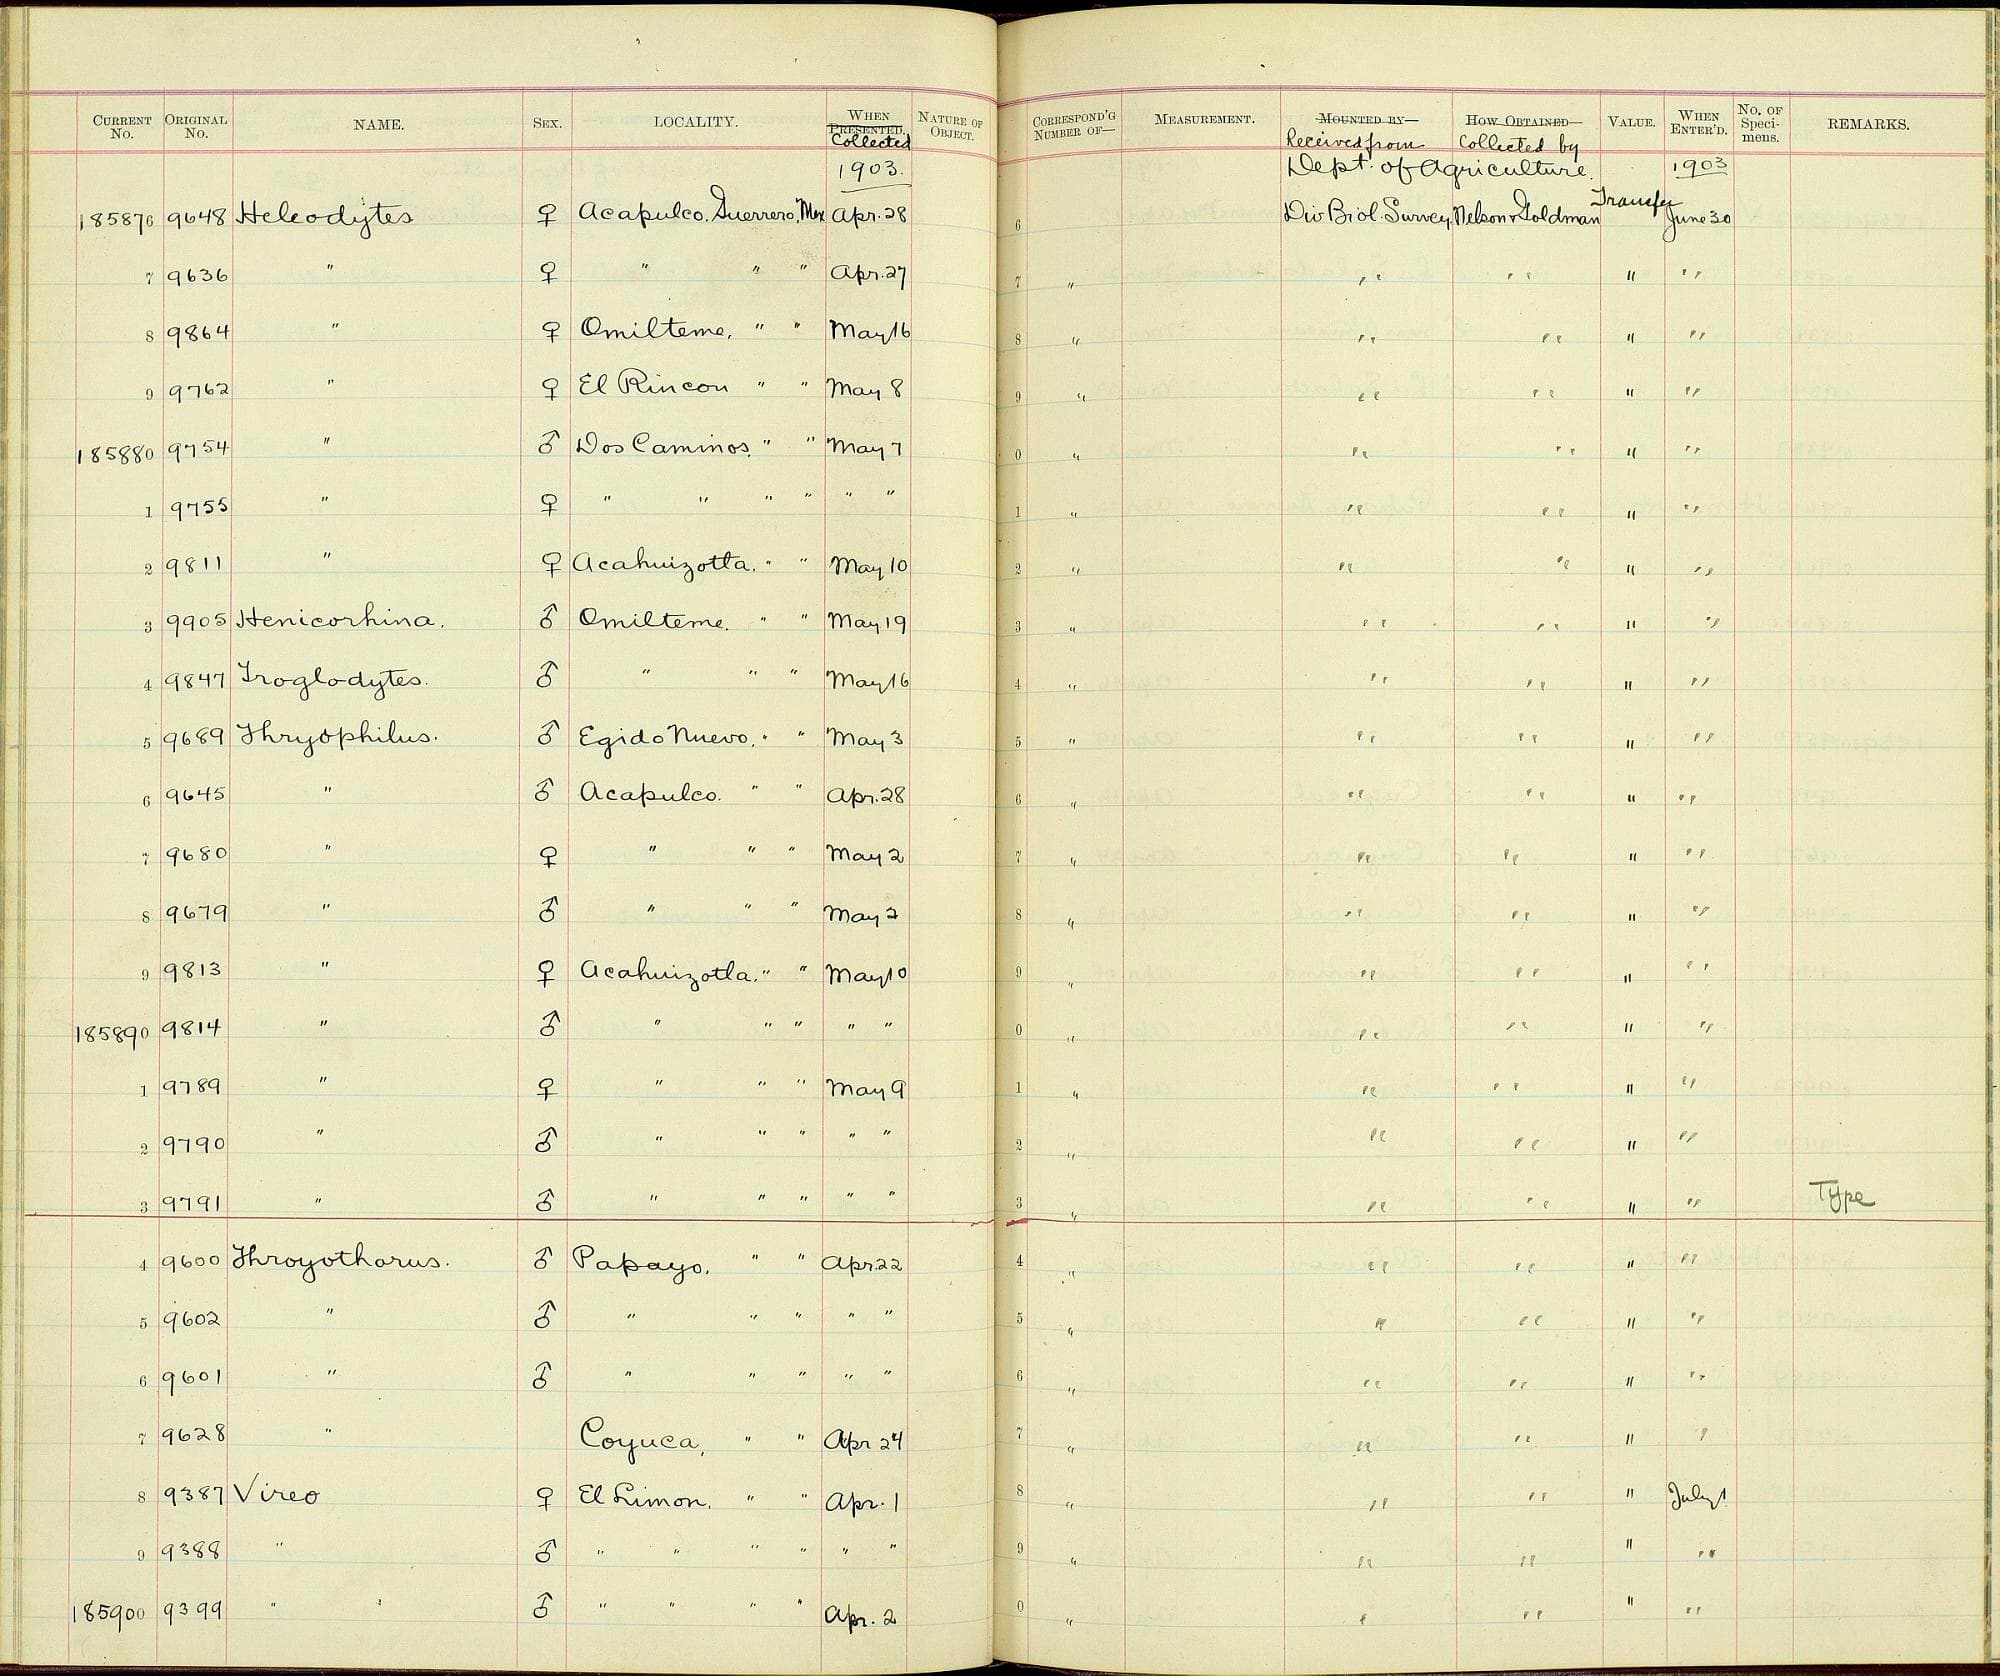 CURRENT No. ORIGINAL No. NAME. SEX. LOCALITY. WHEN PRESENTED. Collected NATURE OF OBJECT. CORRESPOND'G NUMBER OF— MEASUREMENT. MOUNTED BY— Received from HOW OBTAINED— Collected by VALUE. WHEN ENTER'D. No. OF Speci-mens. REMARKS.
1903. Dept. of Agriculture. 1903
185876 9648 Heleodytes ♀ Acapulco, Guerrero, Mex Apr. 28 6 Div Biol. Survey, Nelson & Goldman Transfer June 30
7 9636 " ♀ " " " Apr. 27 7 " " " " "
8 9864 " ♀ Omilteme, " " May 16 8 " " " " "
9 9762 " ♀ El Rincon " " May 8 9 " " " " "
185880 9754 " ♂ Dos Caminos, " " May 7 0 " " " " "
1 9755 " ♀ " " " " " " 1 " " " " "
2 9811 " ♀ Acahuizotla. " " May 10 2 " " " " "
3 9905 Henicorhina. ♂ Omilteme. " " May 19 3 " " " " "
4 9847 Troglodytes. ♂ " " " May 16 4 " " " " "
5 9689 Thryophilus. ♂ Egido Nuevo, " " May 3 5 " " " " "
6 9645 " ♂ Acapulco. " " Apr. 28 6 " " " " "
7 9680 " ♀ " " " May 2 7 " " " " "
8 9679 " ♂ " " " May 2 8 " " " " "
9 9813 " ♀ Acahuizotla. " " May 10 9 " " " " "
185890 9814 " ♂ " " " " " 0 " " " " "
1 9789 " ♀ " " " May 9 1 " " " " "
2 9790 " ♂ " " " " " 2 " " " " "
3 9791 " ♂ " " " " " 3 " " " " " Type
4 9600 Throyothorus. ♂ Papayo. " " Apr. 22 4 " " " " "
5 9602 " ♂ " " " " " 5 " " " " "
6 9601 " ♂ " " " " " 6 " " " " "
7 9628 " Coyuca, " " Apr 24 7 " " " " "
8 9387 Vireo ♀ El Limon. " " Apr. 1 8 " " " " July 1
9 9388 " ♂ " " " " " " 9 " " " " "
185900 9399 " " ♂ " " " " Apr. 2 0 " " " " "